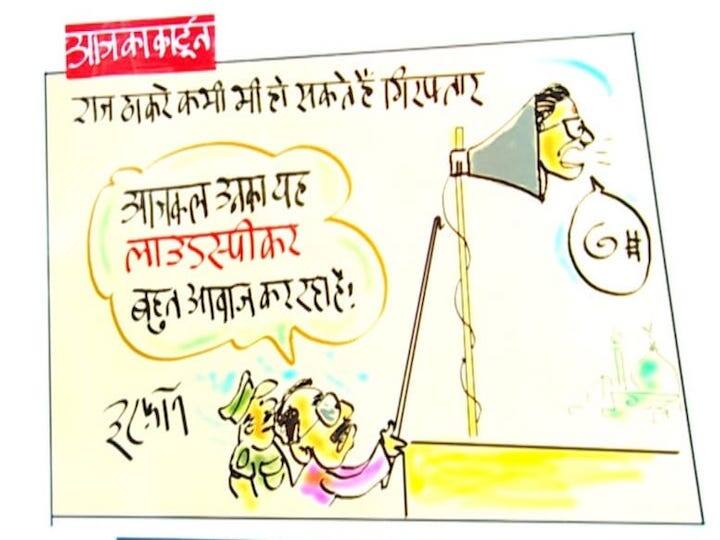 आज का कार्टून
राज ठाकरे कभी भी हो सकते हैं गिरफ्तार
आजकल उनका यह
लाउडस्पीकर
बहुत आवाज कर रहा है!
इरफ़ान
#